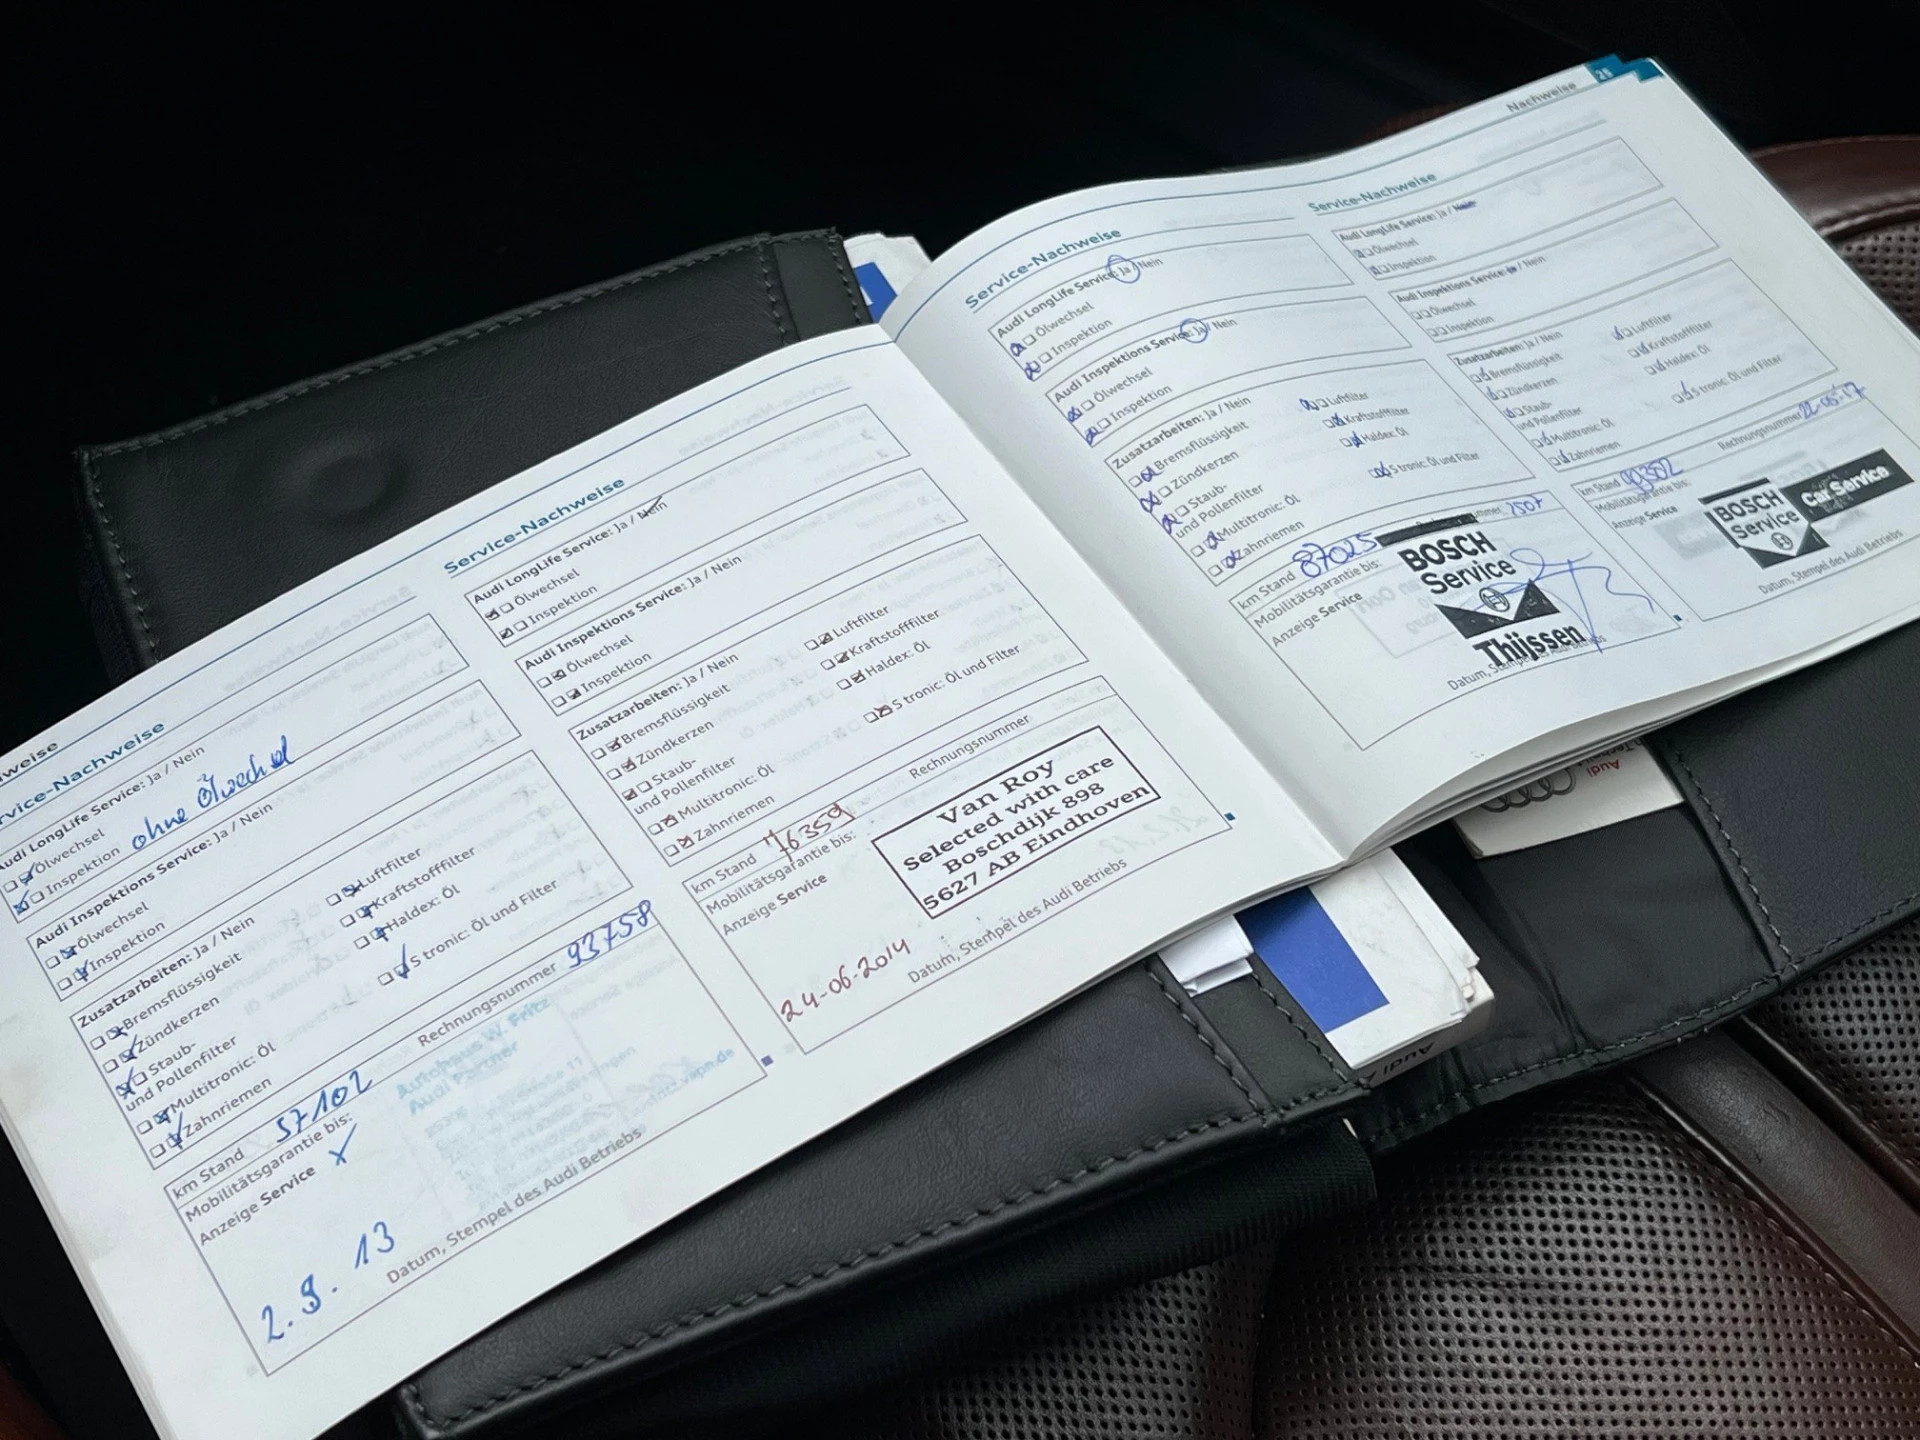 Nachweise
26
weise
rvice-Nachweise
Audi LongLife Service: Ja / Nein
Ölwechsel
Inspektion
ohne Ölwechsel
Audi Inspektions Service: Ja / Nein
Ölwechsel
Inspektion
Zusatzarbeiten: Ja / Nein
Bremsflüssigkeit
Zündkerzen
Staub-
und Pollenfilter
Multitronic: Öl
Zahnriemen
Luftfilter
Kraftstofffilter
Haldex: Öl
S tronic: Öl und Filter
km Stand 57102
Rechnungsnummer 93758
Mobilitätsgarantie bis:
Anzeige Service
Autohaus W. Fritz
Audi Partner
2.9.13
Datum, Stempel des Audi Betriebs
Service-Nachweise
Audi LongLife Service: Ja / Nein
Ölwechsel
Inspektion
Audi Inspektions Service: Ja / Nein
Ölwechsel
Inspektion
Zusatzarbeiten: Ja / Nein
Bremsflüssigkeit
Zündkerzen
Staub-
und Pollenfilter
Multitronic: Öl
Zahnriemen
Luftfilter
Kraftstofffilter
Haldex: Öl
S tronic: Öl und Filter
km Stand 76359
Rechnungsnummer
Mobilitätsgarantie bis:
Anzeige Service
Van Roy
Selected with care
Boschdijk 898
5627 AB Eindhoven
24-06-2014
Datum, Stempel des Audi Betriebs
Service-Nachweise
Audi LongLife Service: Ja / Nein
Ölwechsel
Inspektion
Audi Inspektions Service: Ja / Nein
Ölwechsel
Inspektion
Zusatzarbeiten: Ja / Nein
Bremsflüssigkeit
Zündkerzen
Staub-
und Pollenfilter
Multitronic: Öl
Zahnriemen
Luftfilter
Kraftstofffilter
Haldex: Öl
S tronic: Öl und Filter
km Stand 87025
Mobilitätsgarantie bis:
Anzeige Service
BOSCH
Service
Thijssen
Service-Nachweise
Audi LongLife Service: Ja / Nein
Ölwechsel
Inspektion
Audi Inspektions Service: Ja / Nein
Ölwechsel
Inspektion
Zusatzarbeiten: Ja / Nein
Bremsflüssigkeit
Zündkerzen
Staub-
und Pollenfilter
Multitronic: Öl
Zahnriemen
Luftfilter
Kraftstofffilter
Haldex: Öl
S tronic: Öl und Filter
km Stand
Rechnungsnummer 22-05-17
Mobilitätsgarantie bis:
Anzeige Service
BOSCH
Service
Car Service
Datum, Stempel des Audi Betriebs
Audi
Audi